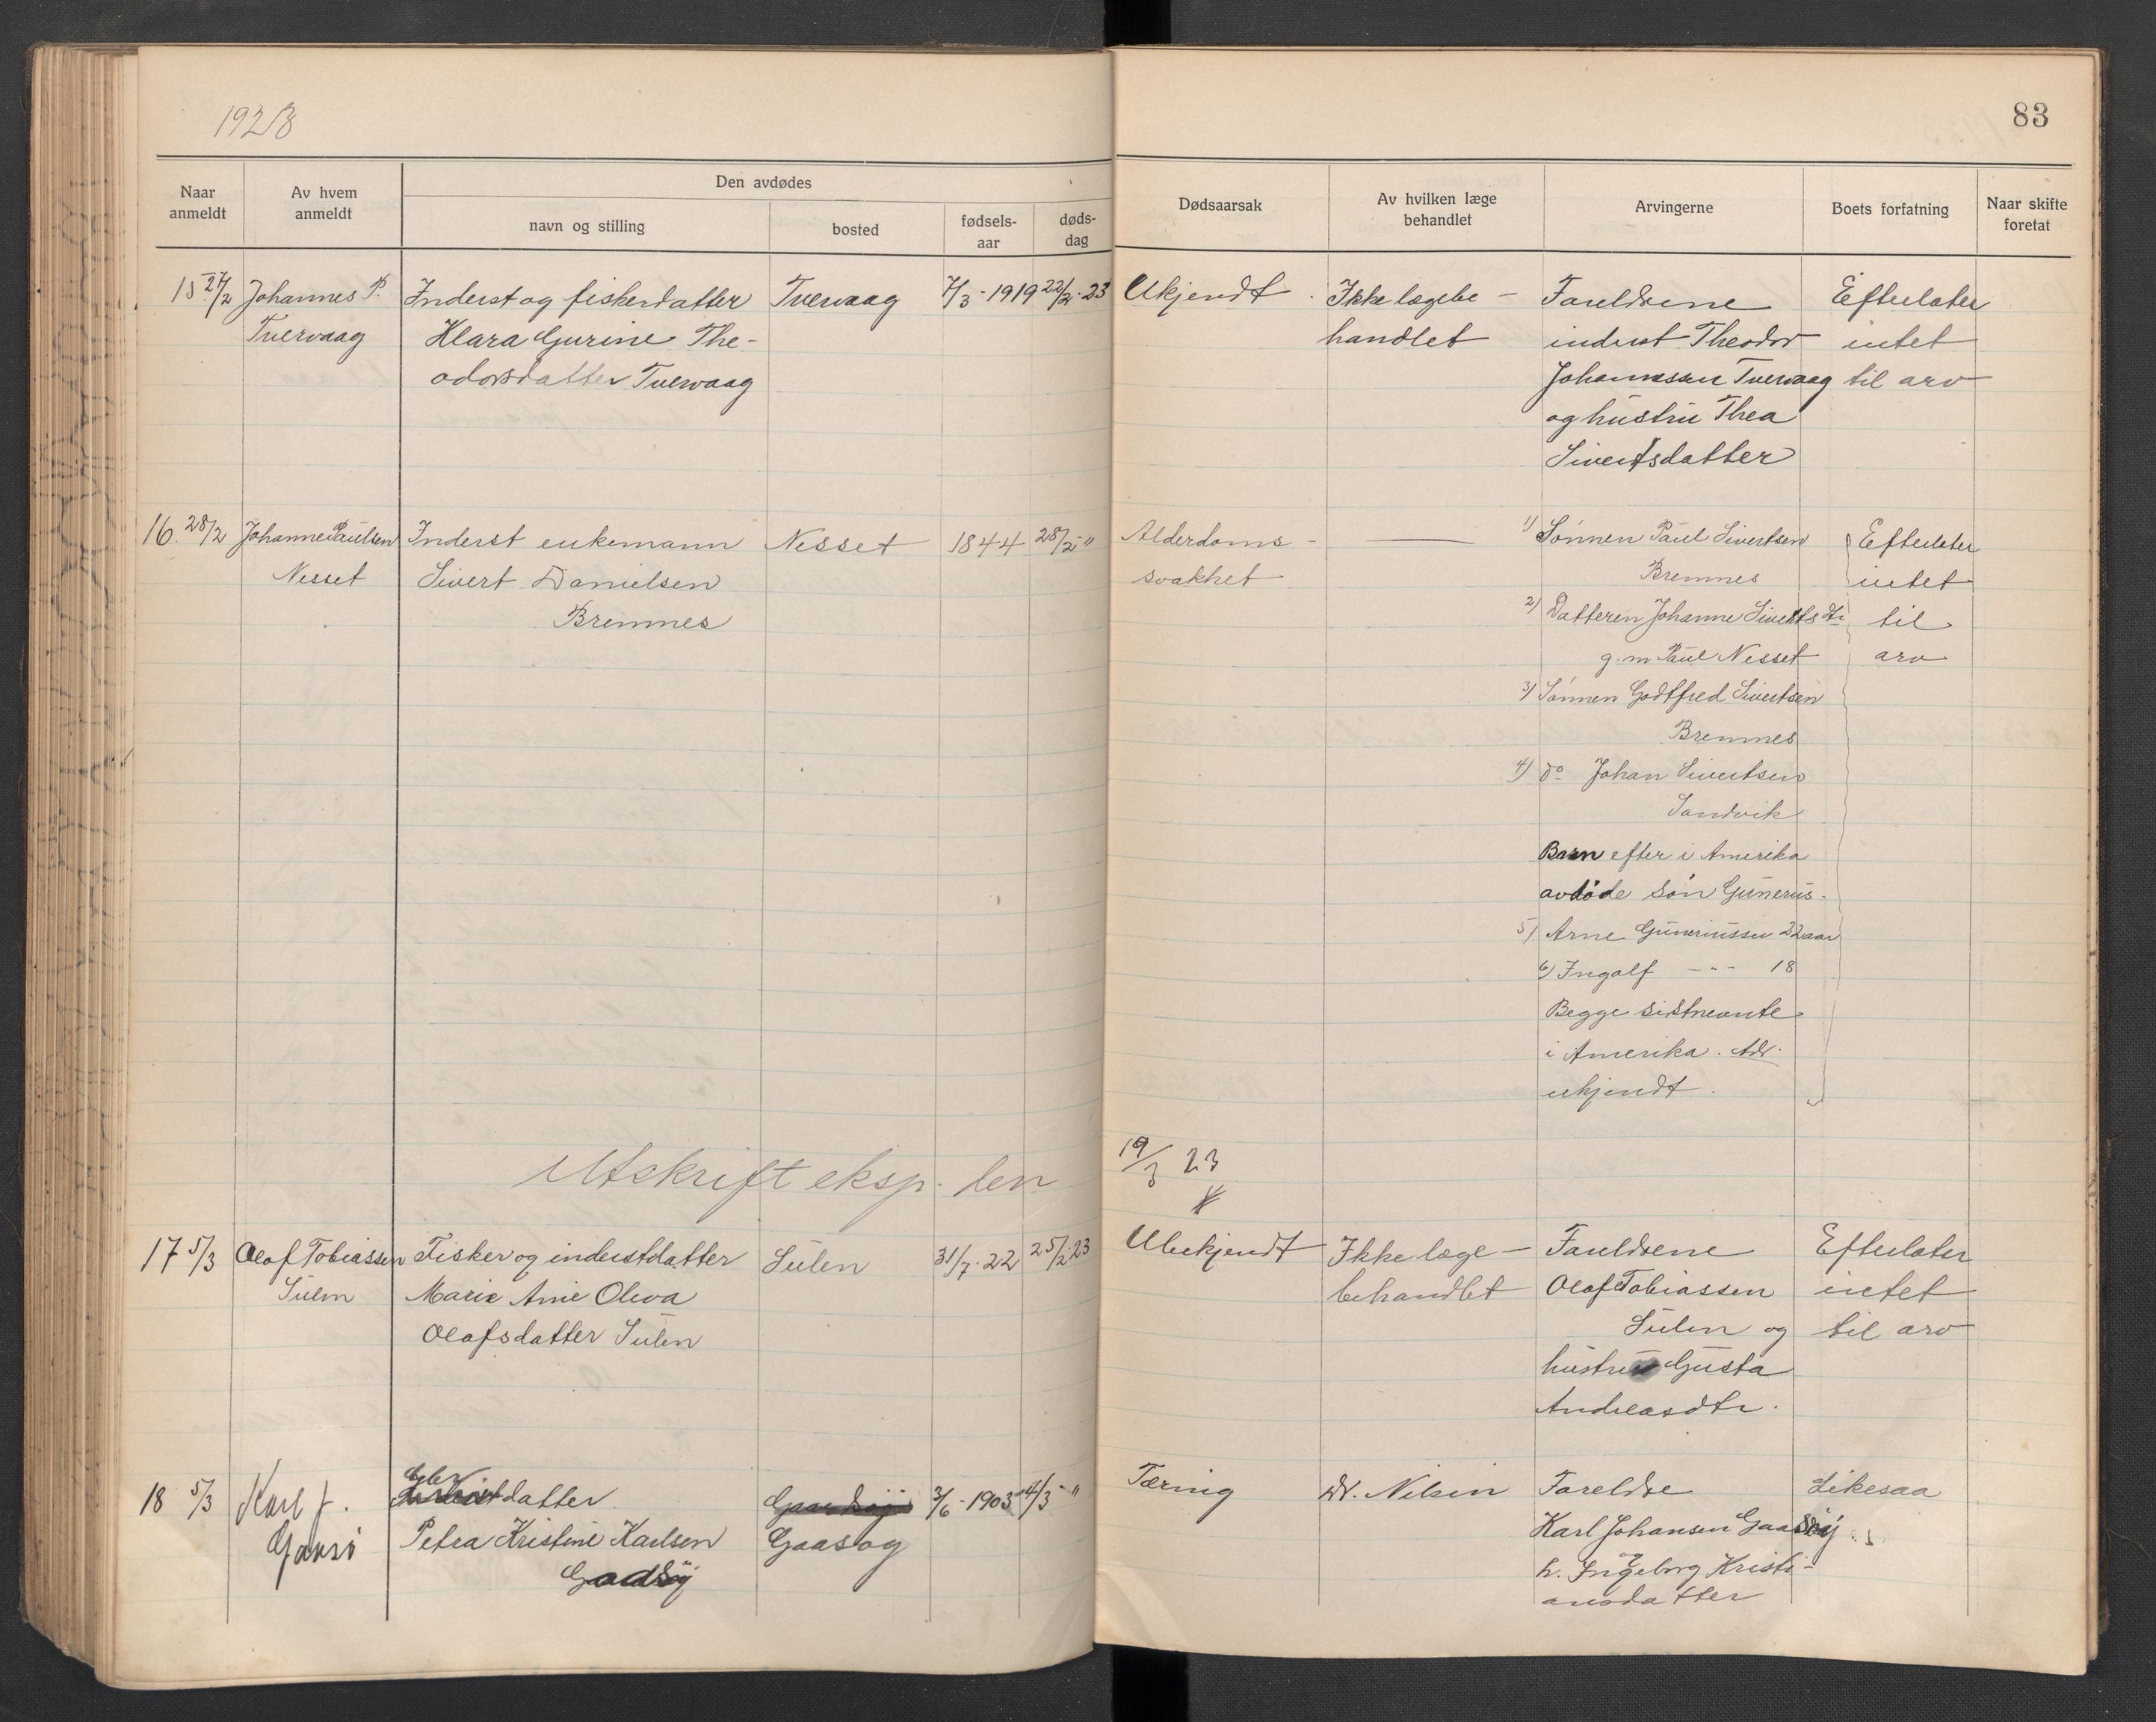 1923
83
Naar anmeldt
Av hvem anmeldt
Den avdødes
navn og stilling
bosted
fødsels-aar
døds-dag
Dødsaarsak
Av hvilken læge behandlet
Arvingerne
Boets forfatning
Naar skifte foretat
15 27/2 Johannes P. Inderst og fiskerdatter Tvervaag 7/3-1919 22/2-23 Ukjendt. Ikke lægebe- Foreldrene Efterlater
Tvervaag Klara Gurine The- handlet inderst Theodor intet
odorsdatter Tvervaag Johannessen Tvervaag til arv
og hustru Thea
Sivertsdatter
16. 28/2 Johanne Paulsen Inderst enkemann Nesset 1844 28/2-" Alderdoms- — 1) Sønnen Paul Sivertsen Efterlater
Nesset Sivert Danielsen svakhet Bremnes intet
Bremnes 2) Datteren Johanne Sivertsdtr til
g.m Paul Nesset arv
3) Sønnen Godtfred Sivertsen
Bremnes
4) do Johan Sivertsen
Sandvik
Barn efter i Amerika
avdøde søn Gunerius.
5) Arne Guneriussen 22 aar
6) Ingolf -"- 18
Begge sistnevnte
i Amerika. Adr.
ukjendt.
Utskrift eksp. len 19/3 23
17 5/3 Olaf Tobiassen Fisker og inderstdatter Sulen 31/7-22 25/2-23 Ubekjendt Ikke læge- Foreldrene Efterlater
Sulen Marie Anie Oleva behandlet Olaf Tobiassen intet
Olafsdatter Sulen Sulen og til arv
hustru Gusta
Andreasdtr.
18 5/3 Karl J. datter 3/6-1903 4/3-" Tæring Dr. Nilsen Foreldre Likesaa
Gaasø Petra Kristine Karlsen Gaasøy Karl Johansen Gaasøy
Gaasøy og
h. Ingeborg Kristi-
ansdatter